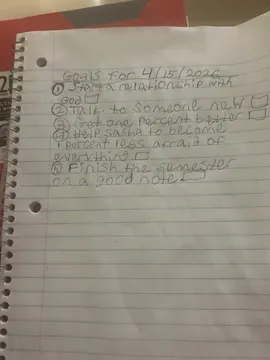 Goals for 4/15/2026
① Start a relationship with
God
② Talk to someone new
③ Get one percent better
④ Help Sasha to become
1 percent less afraid of
everything
⑤ Finish the semester
on a good note